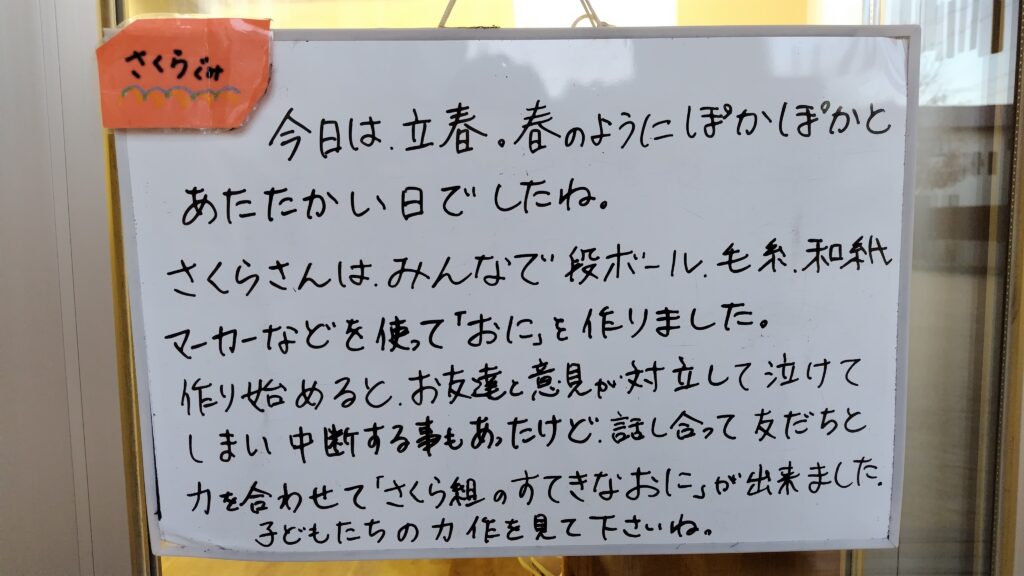 さくらぐみ
今日は、立春。春のようにぽかぽかと
あたたかい日でしたね。
さくらさんは、みんなで段ボール、毛糸、和紙
マーカーなどを使って「おに」を作りました。
作り始めると、お友達と意見が対立して泣けて
しまい中断する事もあったけど、話し合って友だちと
力を合わせて「さくら組のすてきなおに」が出来ました。
子どもたちの力作を見て下さいね。